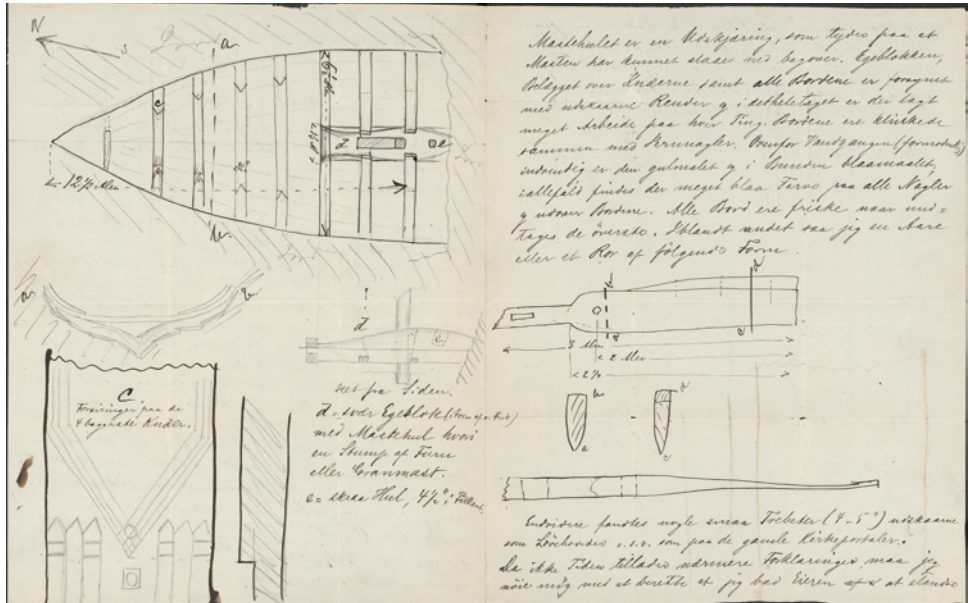 N
a.
c
d
e
12½ Alen
b.
a.
b.
C
Forsiringer paa de
4 bagerste Knæer.
d
e
Set fra Siden.
d = svær Egeblok
med Mastehul hvori
en Stump af Furu
eller Granmast.
e = skraa Hul, 4½" i
Mastehulet er en Udskjæring, som tydes paa at
Masten har kunnet slaaes ned bagover. Egeblokken,
Belægget over Knæerne samt alle Bordene er forsynet
med udskaarne Render og i detheletaget er der lagt
meget Arbeide paa hver Ting. Bordene ere klinkede
sammen med Jernnagler. Ovenfor Vandgangen (formodentlig)
indvendig er den gulmalet og i Bunden blaamalet,
iallefald findes der meget blaa Farve paa alle Nagler
og udover Bordene. Alle Bord ere friske naar und=
tages de överste. Iblandt andet saa jeg en Aare
eller et Ror af fölgende Form.
3 Alen
2 Alen
2¼
a
c
Endvidere fandtes nogle smaa Træbeter (4-5") udskaarne
som Lövehoveder o.s.v. som paa de gamle Kirkeportaler.
Da ikke Tiden tillader nærmere Forklaringer maa jeg
nöie mig med at berette at jeg bad Eieren at standse